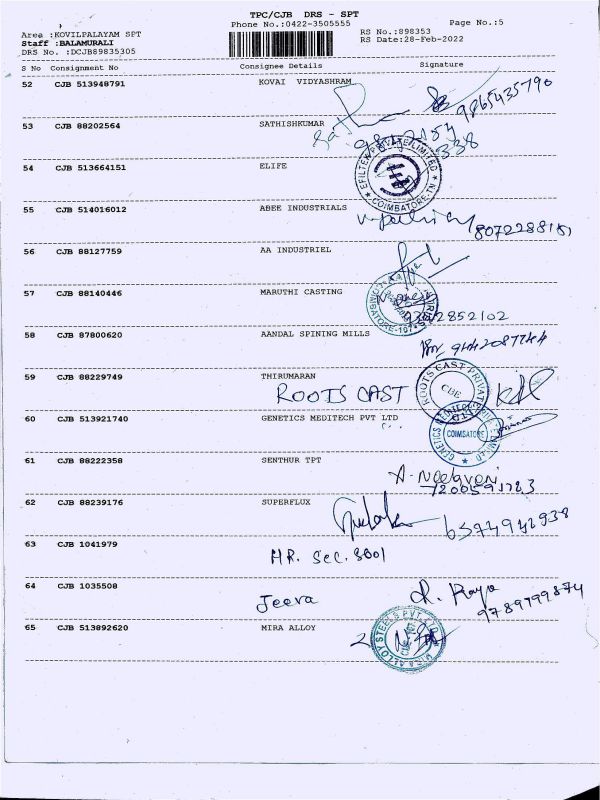 TPC/CJB DRS - SPT
Page No.:5
Phone No.:0422-3505555
Area :KOVILPALAYAM SPT
RS No.:898353
Staff :BALAMURALI
RS Date:28-Feb-2022
DRS No. :DCJB89835305
S No Consignment No Consignee Details Signature
52 CJB 513948791 KOVAI VIDYASHRAM
9865435790
53 CJB 88202564 SATHISHKUMAR
54 CJB 513664151 ELIFE
EFILTER PRIVATE LIMITED
COIMBATORE-TN
55 CJB 514016012 ABEE INDUSTRIALS
56 CJB 88127759 AA INDUSTRIEL
57 CJB 88140446 MARUTHI CASTING
58 CJB 87800620 AANDAL SPINING MILLS
59 CJB 88229749 THIRUMARAN
ROOTS CAST
ROOTS CAST PRIVATE
CBE
60 CJB 513921740 GENETICS MEDITECH PVT LTD
COIMBATORE
61 CJB 88222358 SENTHUR TPT
62 CJB 88239176 SUPERFLUX
6374942938
63 CJB 1041979
HR. Sec. Sool
64 CJB 1035508
Jeeva
9789799874
65 CJB 513892620 MIRA ALLOY
MIRA ALLOY STEELS PVT LTD